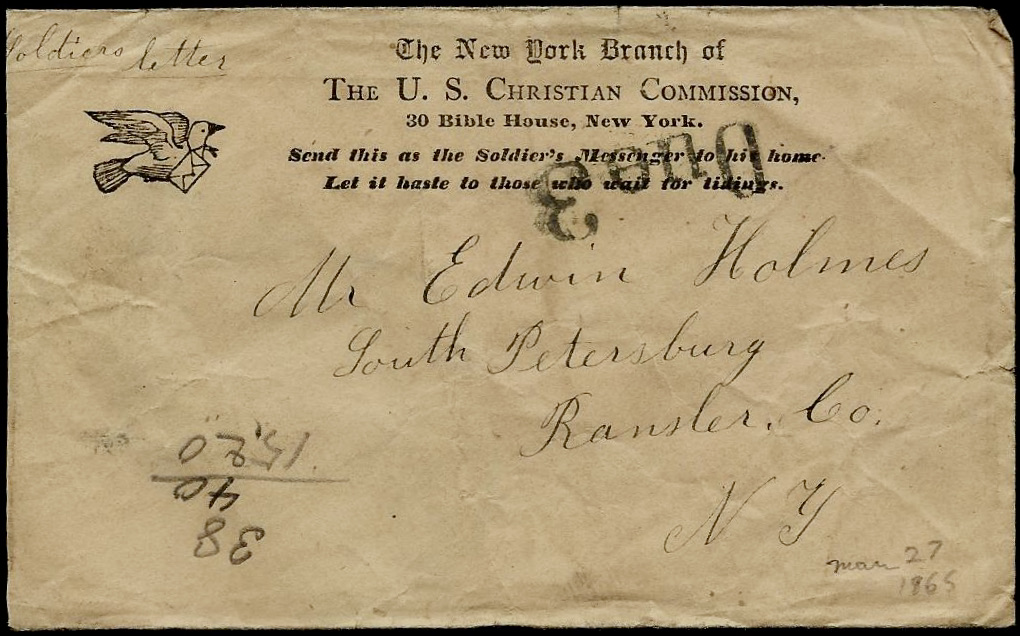 Soldiers letter
The New York Branch of
THE U. S. CHRISTIAN COMMISSION,
30 Bible House, New York.
Send this as the Soldier's Messenger to his home.
Let it haste to those who wait for tidings.
Due 3
Mr Edwin Holmes
South Petersburg
Ransler. Co.
N Y
38
40
15.20
mar 27
1865